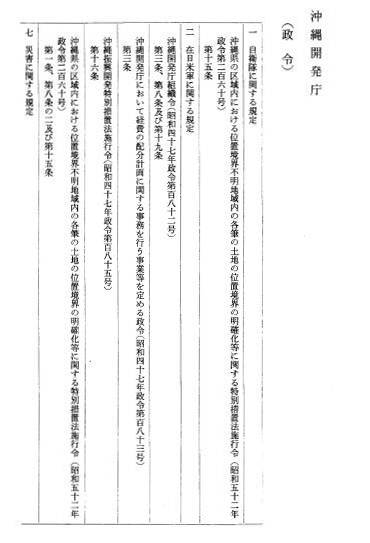 沖縄開発庁
（政　令）
一　自衛隊に関する規定
沖縄県の区域内における位置境界不明地域内の各筆の土地の位置境界の明確化等に関する特別措置法施行令（昭和五十二年
政令第二百六十号）
第十五条
二　在日米軍に関する規定
沖縄開発庁組織令（昭和四十七年政令第百八十二号）
第三条、第八条及び第十九条
沖縄開発庁において経費の配分計画に関する事務を行う事業等を定める政令（昭和四十七年政令第百八十三号）
第三条
沖縄振興開発特別措置法施行令（昭和四十七年政令第百八十五号）
第十六条
沖縄県の区域内における位置境界不明地域内の各筆の土地の位置境界の明確化等に関する特別措置法施行令（昭和五十二年
政令第二百六十号）
第一条、第八条の二及び第十五条
七　災害に関する規定